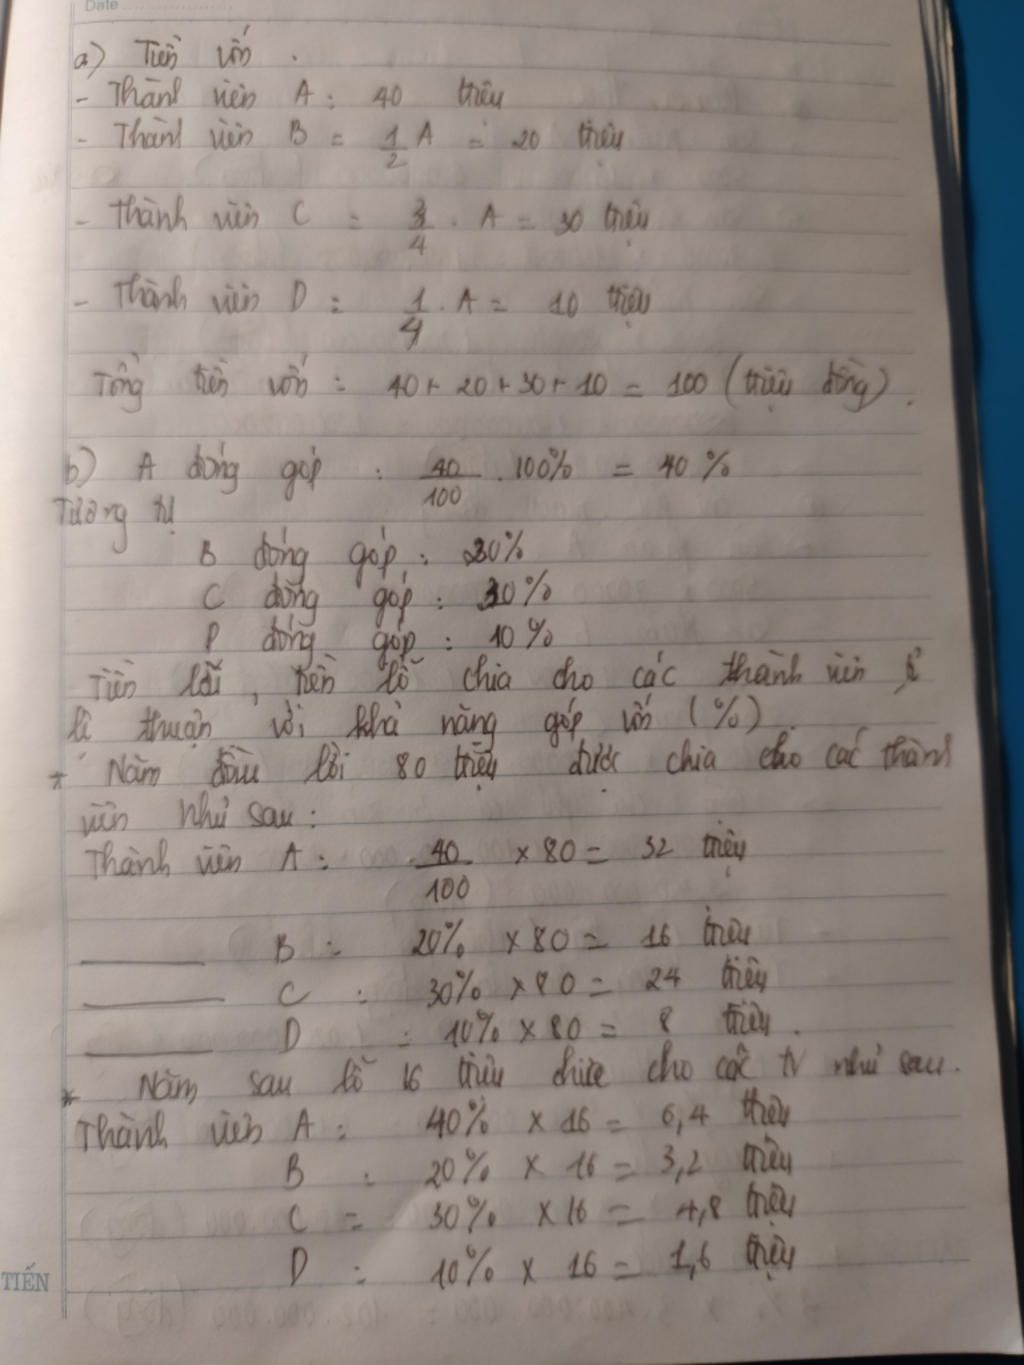 Date
a) Tiền vốn.
- Thành viên A: 40 triệu
- Thành viên B = 1/2 A = 20 triệu
- Thành viên C = 3/4 . A = 30 triệu
- Thành viên D = 1/4 . A = 10 triệu
Tổng tiền vốn = 40 + 20 + 30 + 10 = 100 (triệu đồng).
b) A đóng góp : 40/100 . 100% = 40%
Tương tự
B đóng góp : 20%
C đóng góp : 30%
D đóng góp : 10%
Tiền lãi, tiền lỗ chia cho các thành viên tỉ
lệ thuận với khả năng góp vốn (%)
* Năm đầu lời 80 triệu được chia cho các thành
viên như sau:
Thành viên A : 40/100 x 80 = 32 triệu
B : 20% x 80 = 16 triệu
C : 30% x 80 = 24 triệu
D : 10% x 80 = 8 triệu.
* Năm sau lỗ 16 triệu chia cho các tv như sau.
Thành viên A : 40% x 16 = 6,4 triệu
B : 20% x 16 = 3,2 triệu
C = 30% x 16 = 4,8 triệu
D : 10% x 16 = 1,6 triệu
TIẾN